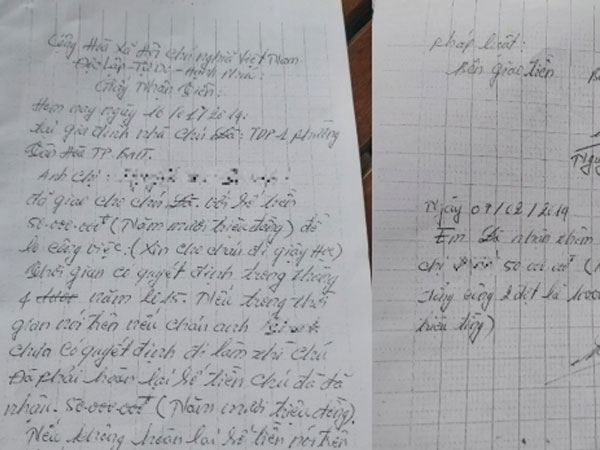 Cộng Hòa Xã Hội Chủ nghĩa Việt Nam
Độc Lập - Tự Do - Hạnh Phúc
Giấy Nhận Tiền
Hôm nay ngày 16/01/2014.
Tại gia đình nhà chú TDP 1 phường
Tân Hòa TP. BMT.
Anh Chị:
đã giao cho chú với số tiền
50.000.000đ (Năm mươi triệu đồng) để
lo công việc. (Xin cho cháu đi giây Học)
thời gian có quyết định trong tháng
4 năm Nếu trong thời
gian nói trên nếu cháu anh
chưa có quyết định đi làm thì chú
phải hoàn lại số tiền chú đã
nhận. 50.000.000đ (Năm mươi triệu đồng).
Nếu không hoàn lại số tiền nói trên
pháp luật:
Bên giao tiền
Ngày 09/02/2014
Em nhận thêm
chị 50.000.000đ
Tổng cộng 2 đợt là
triệu đồng)